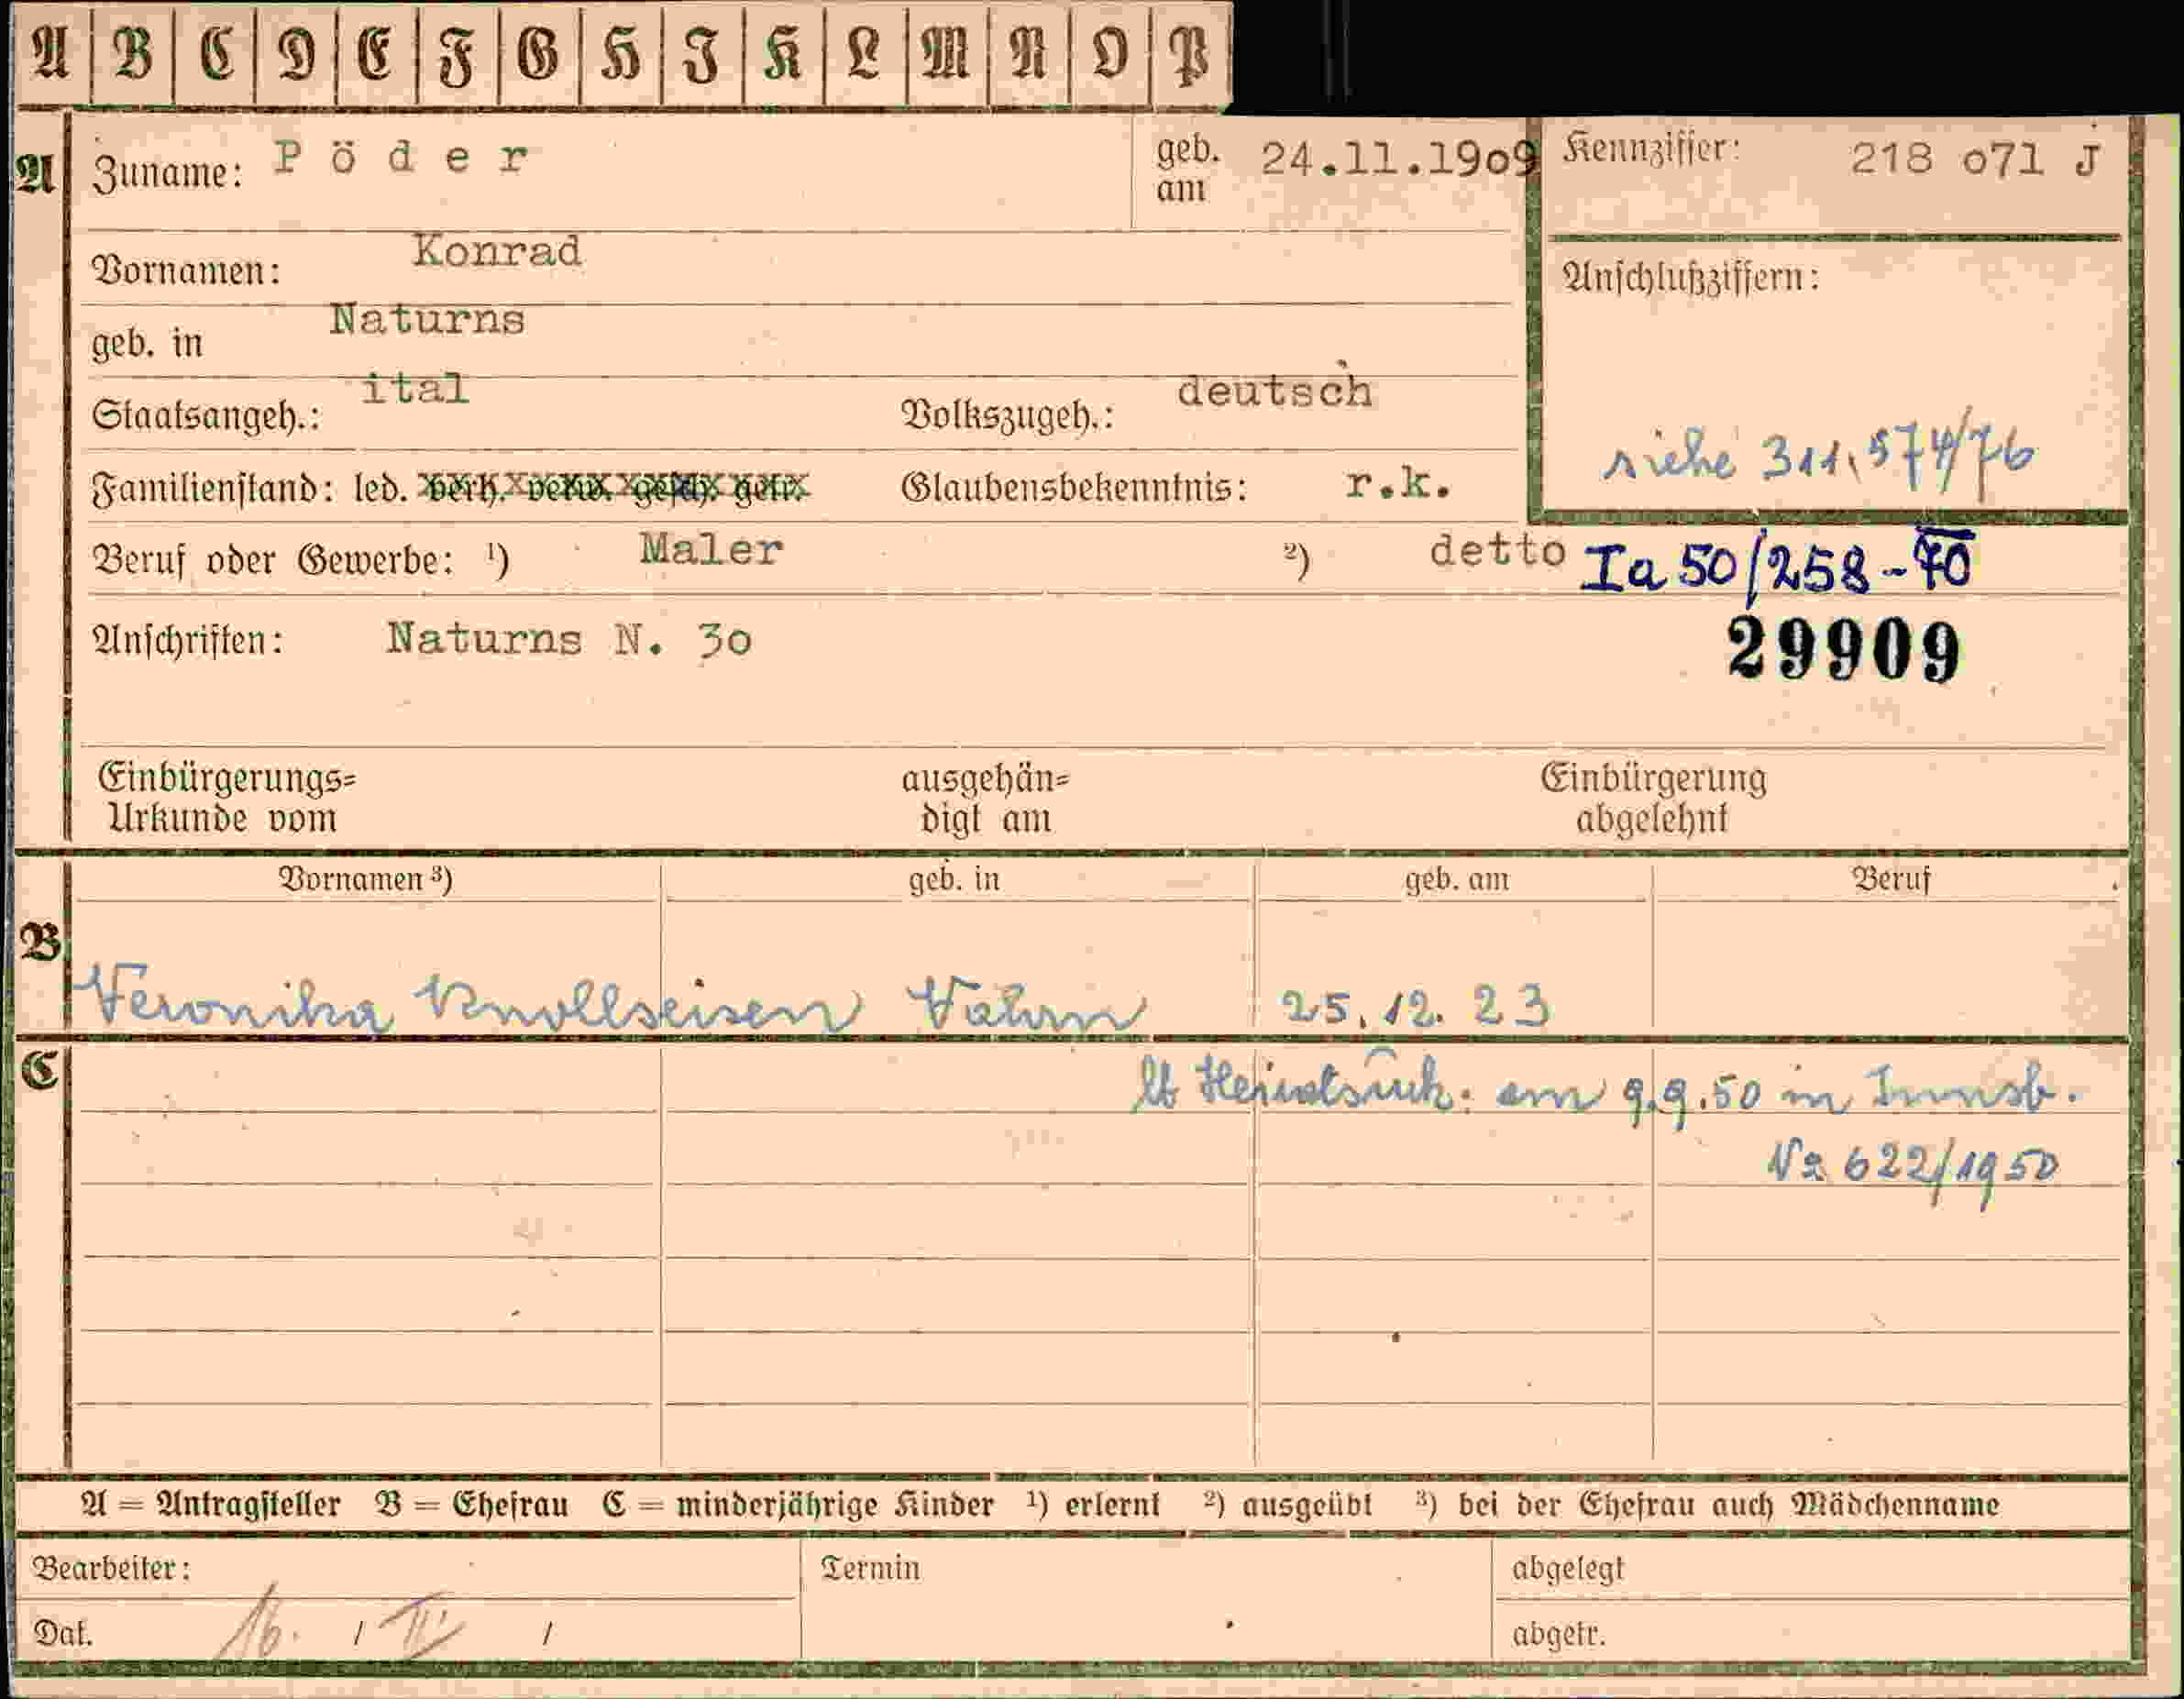 A B C D E F G H I K L M N O P
A Zuname: Pöder geb. am 24.11.1909 Kennziffer: 218 071 J
Vornamen: Konrad
Anschlußziffern:
geb. in Naturns
Staatsangeh.: ital Volkszugeh.: deutsch
siehe 311,574/76
Familienstand: led. verh. verw. gesch. getr. Glaubensbekenntnis: r.k.
Beruf oder Gewerbe: ¹) Maler ²) detto Ia 50/258-70
Anschriften: Naturns N. 30 29909
Einbürgerungs= ausgehän= Einbürgerung
Urkunde vom digt am abgelehnt
Vornamen ³) geb. in geb. am Beruf
B
Veronika Knollseisen Vahrn 25.12.23
C lt am 9.9.50 in Innsb.
622/1950
A = Antragsteller B = Ehefrau C = minderjährige Kinder ¹) erlernt ²) ausgeübt ³) bei der Ehefrau auch Mädchenname
Bearbeiter: Termin abgelegt
Dat. 16. / / abgetr.